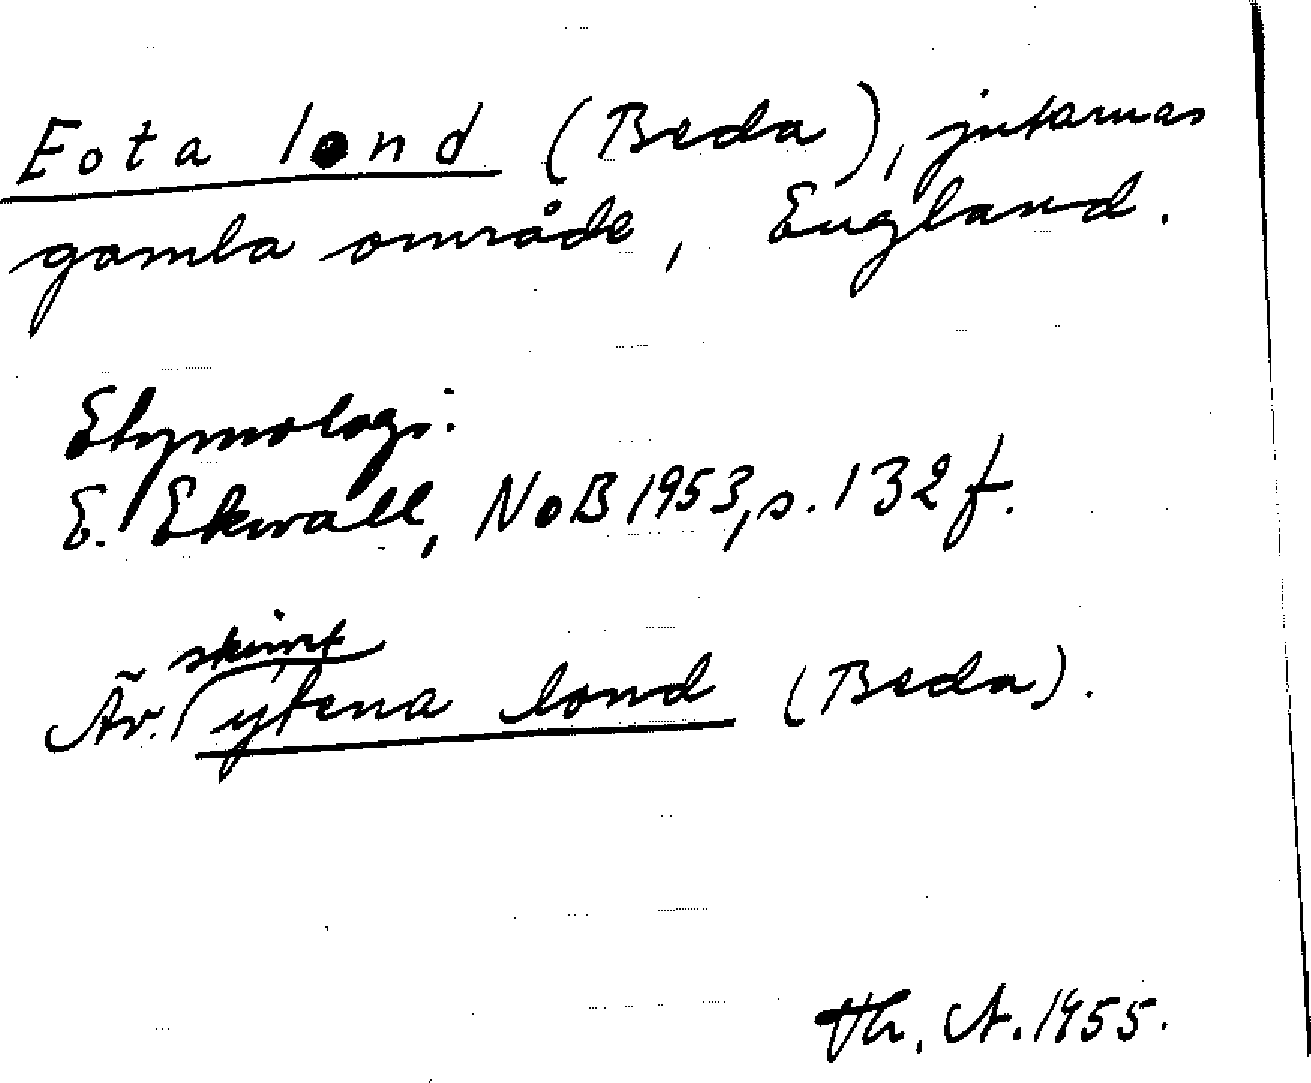 Eota lond (Beda), jutarnas
gamla område, England.
Etymologi:
E. Ekwall, NoB 1953, s. 132 f.
Äv. skrivet ytena lond (Beda).
Th. A. 1955.